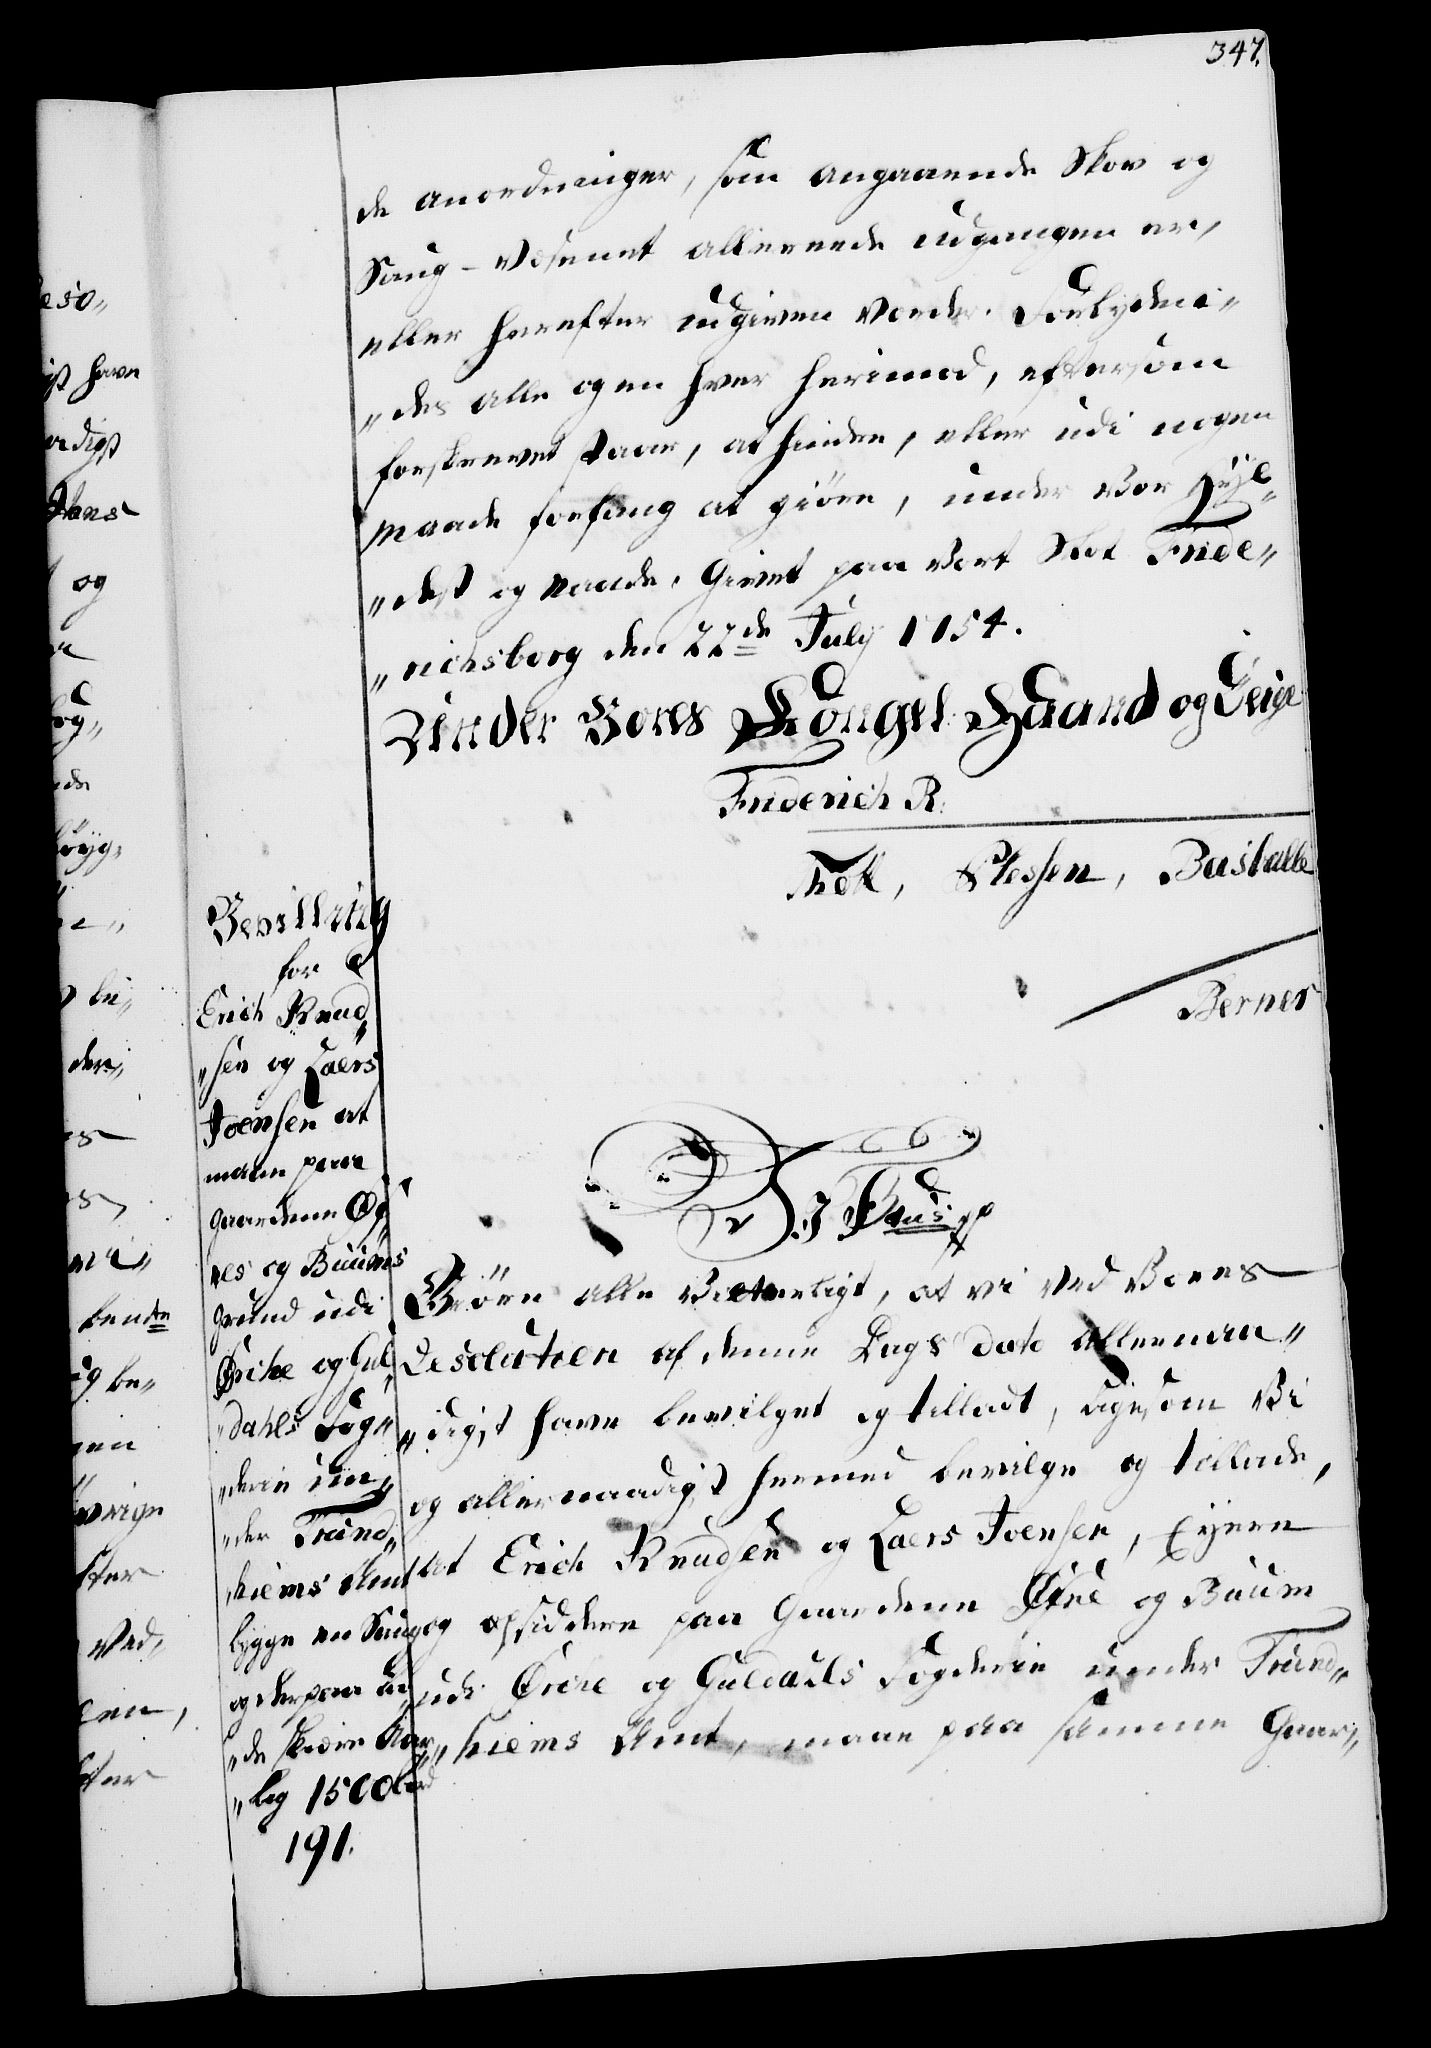 347.
de anordninger, som angaaende Skov og
Saug-Væsenet allereede udgangen er,
eller herefter udgiven vorder. Forbydeni„
„des alle og en hver herimod, eftersom
forskrevet staar, at hindre, eller udi nogen
maade forfang at giöre, under Vor Hyl„
„dest og naade. Givet paa Vort Slot Fride„
„richsborg den 22de July 1754.
Under Vores Kongel: Haand og Seigl
Friderich R.
Holk, Plessen, Bastalle
Berner
Bevilling
for
Erich Knud„
„sen og Laers
Joensen at
maae paa
gaardene Øf„
nes og Buums
grund udi
Ørche og Gul„
„dahls Fog„
„derie un„
„der Trund„
„hiems Amt
bygge en Saug
og derpaa aa
„de skiere Aar„
„lig 1500 bord
191.
V. J. F. 5tus. pp
Giöre alle Vitterligt, at vi ved Vores
Resolution af denne Dags dato allernaa„
„digst have bevilget og tilladt, ligesom Vi
og allernaadigst hermed bevilge og tillade,
at Erich Knudsen og Laers Joensen, Eyere
og opsiddere paa Gaardene Øfne og Buum
udi Ørche og Guldahls Fogderie under Trund„
„hiems Amt, maae paa samme Gaar„
eso„
st have
adigst
Hans
og
og„
de
byg„
be„
der„
bente
og be„
gen
övrige
fter
Ved„
een,
fter